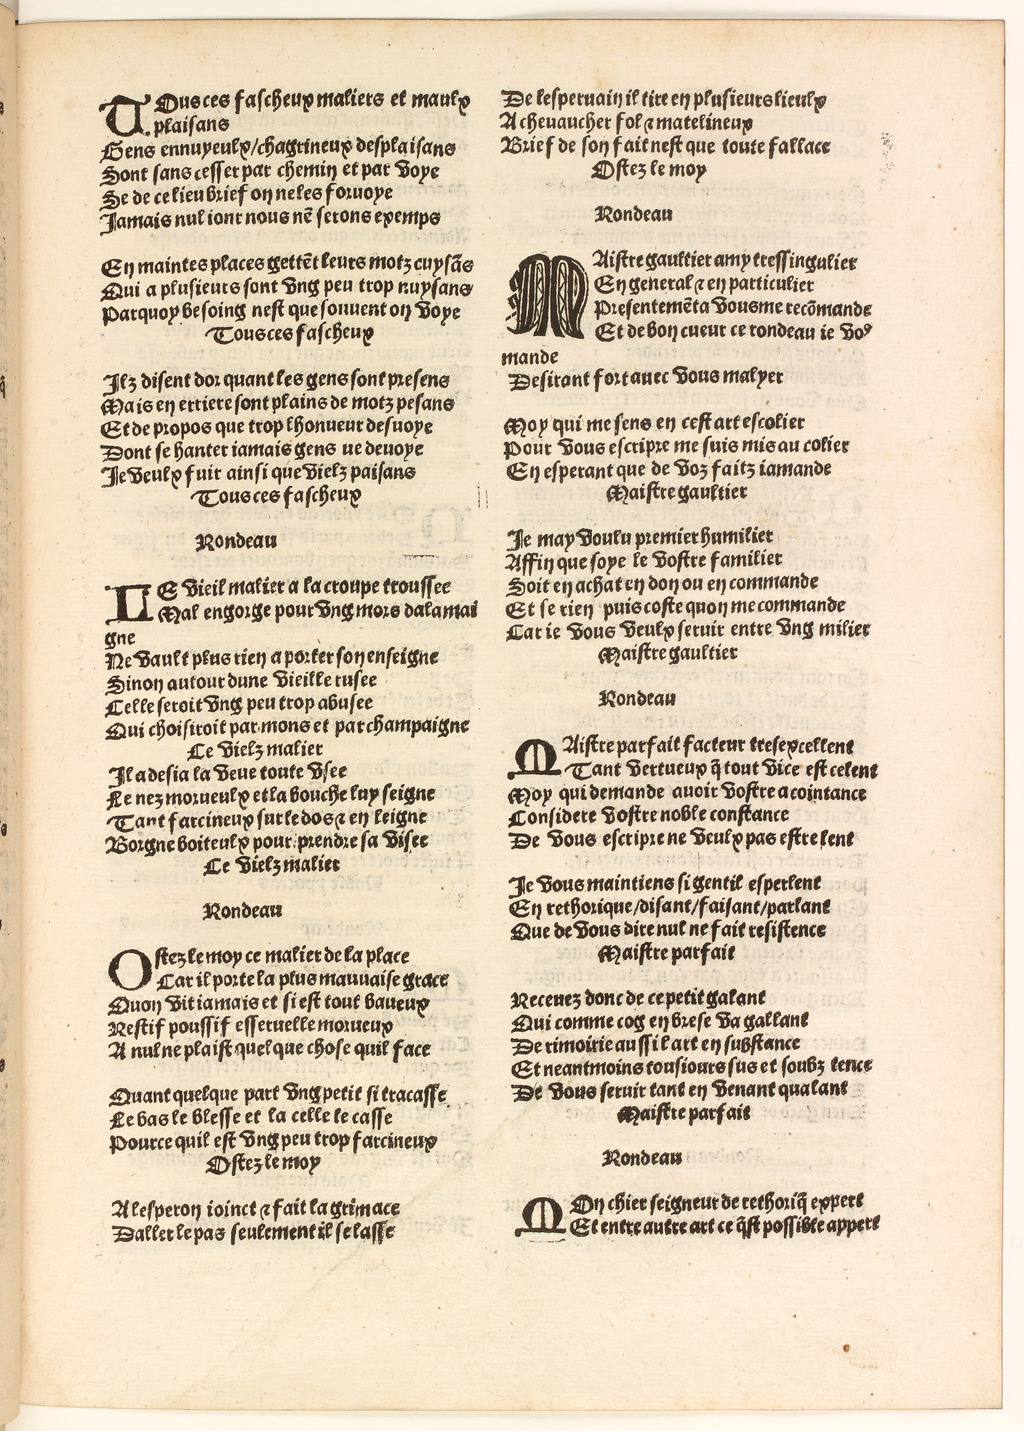 TOusces fascheux maliers et maulx
plaisans
Gens ennuyeulx/chagrineux desplaisans
Sont sans cesser par chemin et par voye
Se de ce lieu brief on ne les forvoye
Jamais nul iont nous nẽ serons exemps
En maintes places gettẽt leurs motz cuysãs
Qui a plusieurs sont ung peu trop nuysans
Parquoy besoing nest que souvent on voye
Tousces fascheux
Ilz disent dor quant les gens sont presens
Mais en erriere sont plains de motz pesans
Et de propos que trop lhonneur desvoye
Dont se hanter iamais gens ne devoye
Je veulx fuir ainsi que vielz paisans
Tousces fascheux
Rondeau
LE vieil malier a la croupe troussee
Mal engorge pour ung mors dalamai
gne
Ne vault plus rien a porter son enseigne
Sinon autour dune vieille rusee
Celle seroit ung peu trop abusee
Qui choisiroit par mons et par champaigne
Le vielz malier
Il a desia la veue toute usee
Le nez morveulx et la bouche luy seigne
Tant farcineux sur le dos ⁊ en leigne
Borgne boiteulx pour prendre sa visee
Le vielz malier
Rondeau
Ostez le moy ce malier de la place
Car il porte la plus mauvaise grace
Quon vit iamais et si est tout baveux
Restif poussif esservelle morveux
A nul ne plaist quelque chose quil face
Quant quelque part ung petit si tracasse
Le bas le blesse et la celle le casse
Pource quil est ung peu trop farcineux
Ostez le moy
A lesperon ioinct ⁊ fait la grimace
Daller le pas seulement il se lasse
De lespervain il tire en plusieurs lieulx
A chevaucher fol ⁊ matelineux
Brief de son fait nest que toute fallace
Ostez le moy
Rondeau
MAistre gaultier amy tressingulier
En general ⁊ en particulier
Presentemẽt a vous me recõmande
Et de bon cueur ce rondeau ie voꝰ
mande
Desirant fort avec vous malyer
Moy qui me sens en cest art escolier
Pour vous escripre me suis mis au colier
En esperant que de voz faitz iamande
Maistre gaultier
Je may voulu premier humilier
Affin que soye le vostre familier
Soit en achat en don ou en commande
Et se rien puis coste quon me commande
Car ie vous veulx servir entre ung milier
Maistre gaultier
Rondeau
MAistre parfait facteur tresexcellent
Tant vertueux q̃ tout vice est celent
Moy qui demande avoir vostre acointance
Considere vostre noble constance
De vous escripre ne veulx pas estre lent
Je vous maintiens si gentil esperlent
En rethorique/disant/faisant/parlant
Que de vous dire nul ne fait resistence
Maistre parfait
Recevez donc de ce petit galant
Qui comme cog en brese va gallant
De rimoirie aussi lart en substance
Et neantmoins tousiours sus et soubz tence
De vous servir tant en venant qualant
Maistre parfait
Rondeau
MOn chier seigneur de rethoriq̃ expert
Et entre autre art ce q̃st possible appert